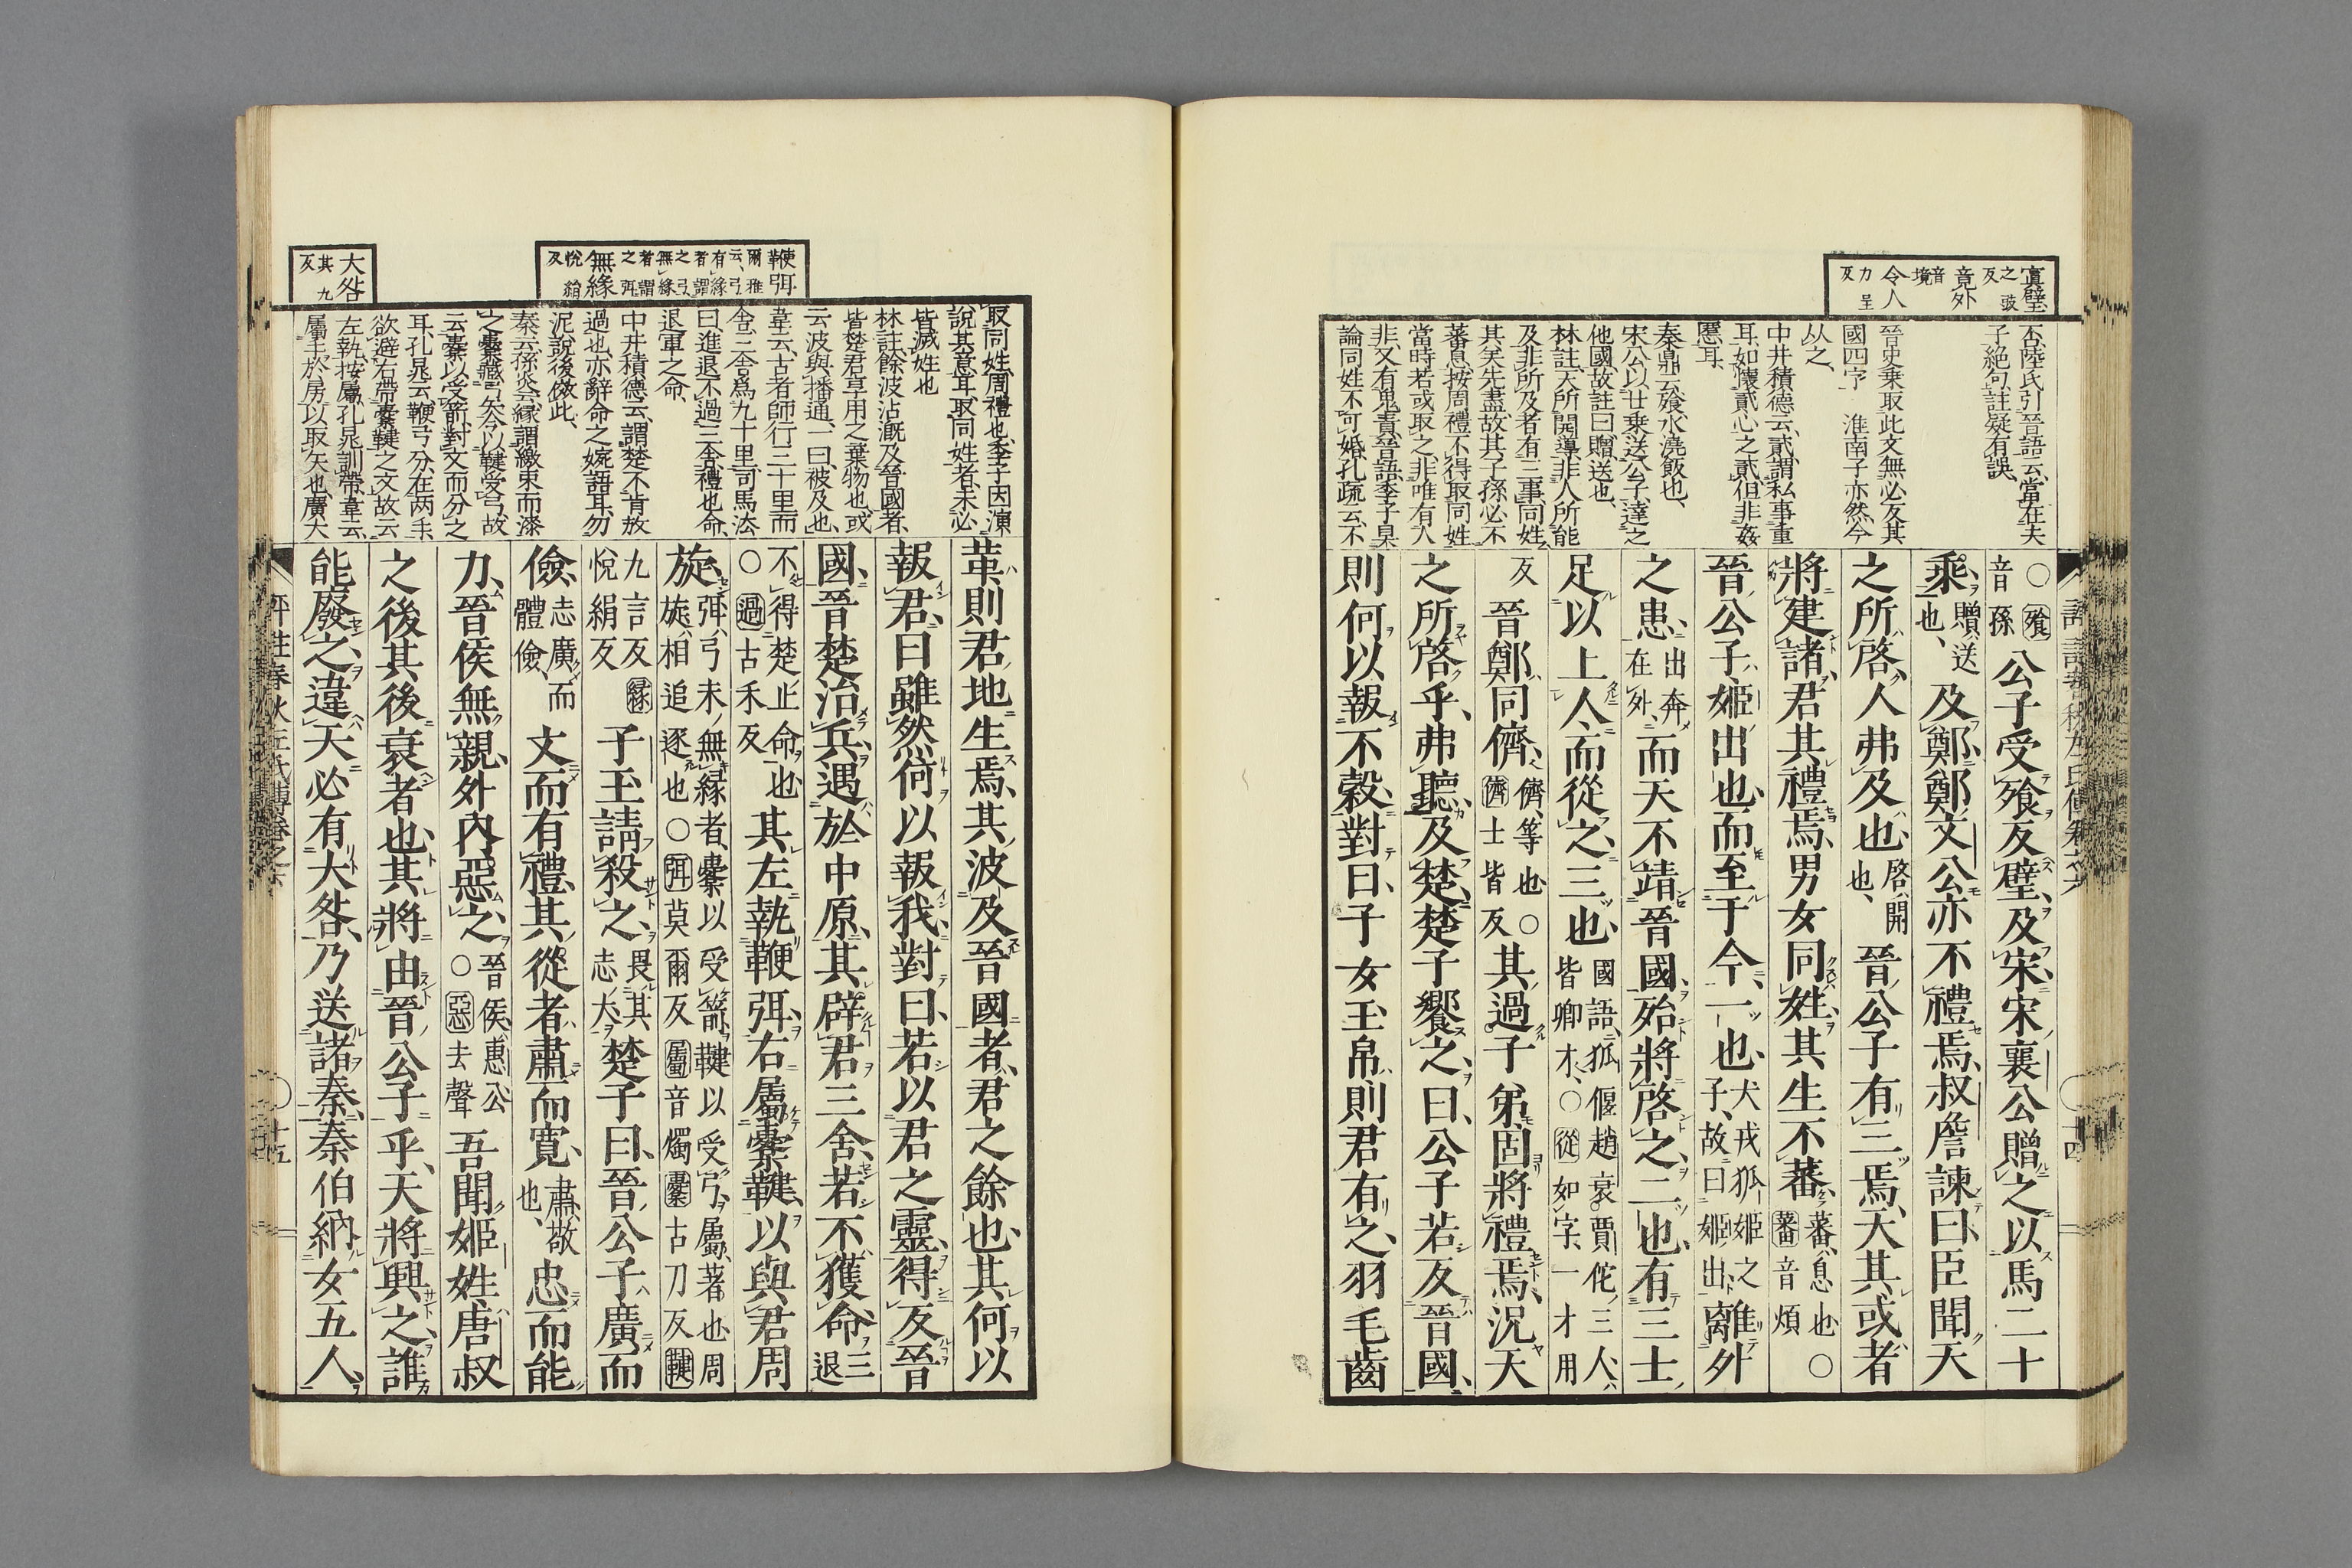 寘璧
之豉
反
竟外
音
境
令人
力呈
反
否陸氏引晉語云當在夫
子絶句註疑有誤
晉史乗取此文無必反其
國四字　淮南子亦然今
以之
中井積德云貳謂私事重
耳如懷貳心之貳但非姦
慝耳
秦鼎云飧水澆飯也
宋公以廿乗送公子達之
他國故註曰贈送也
林註天所開導非人所能
及非所及者有三事同姓
其矣先盡故其子孫必不
蕃息按周禮不得取同姓
當時若或取之非唯有人
非又有鬼責晉語季子杲
論同姓不可婚孔疏云不
○飧
音孫
公子受飧反璧及宋宋襄公贈之以馬二十
乘
贈送
也
及鄭鄭文公亦不禮焉叔詹諫曰臣聞天
之所啓人弗及也
啓開
也
晉公子有三焉天其或者
將建諸君其禮焉男女同姓其生不蕃
蕃息也○
蕃音煩
晉公子姬出也而至于今一也
犬戎狐姬之
子故曰姬出
離外
之患
出奔
在外
而天不靖晉國殆將啓之二也有三士
足以上人而從之三也
國語狐偃趙衰賈佗三人
皆卿才○從如字一才用
反
晉鄭同儕
儕等也○
儕士皆反
其過子弟固將禮焉況天
之所啓乎弗聽及楚楚子饗之曰公子若反晉國
則何以報不穀對曰子女玉帛則君有之羽毛齒
鞭弭
爾雅
云弓
有縁
者謂
之弓
無縁
者謂
之弭
無緣
悅絹
反
大咎
其九
反
取同姓周禮也季子因演
說其意耳取同姓者未必
皆滅姓也
林註餘波沾漑及晉國者
皆楚君享用之棄物也或
云波與播通一曰被及也
韋云古者師行三十里而
舍三舍爲九十里司馬法
曰進退不過三舍禮也命
退軍之命
中井積德云謂楚不肯放
過也亦辭命之婉語耳勿
泥說後倣此
秦云孫炎云緣謂繳束而漆
之櫜藏弓矢今以鞬受弓故
云櫜以受箭對文而分之
耳孔晁云鞭弓分在两手
欲避右帶櫜鞬之文故云
左執按屬孔晁訓帶韋云
屬主於房以取矢也廣大
革則君地生焉其波及晉國者君之餘也其何以
報君曰雖然何以報我對曰若以君之靈得反晉
國晉楚治兵遇於中原其辟君三舍若不獲命
三
退
不得楚止命也
○過古禾反
其左執鞭弭右屬櫜鞬以與君周
旋
弭弓未無緣者櫜以受箭鞬以受弓屬著也周
旋相追逐也○弭莫爾反屬音燭櫜古刀反鞬
九言反緣
悅絹反
子玉請殺之
畏其
志大
楚子曰晉公子廣而
儉
志廣而
體儉
文而有禮其從者肅而寬
肅敬
也
忠而能
力晉侯無親外內惡之
晉侯惠公
○惡去聲
吾聞姬姓唐叔
之後其後衰者也其將由晉公子乎天將興之誰
能廢之違天必有大咎乃送諸秦秦伯納女五人